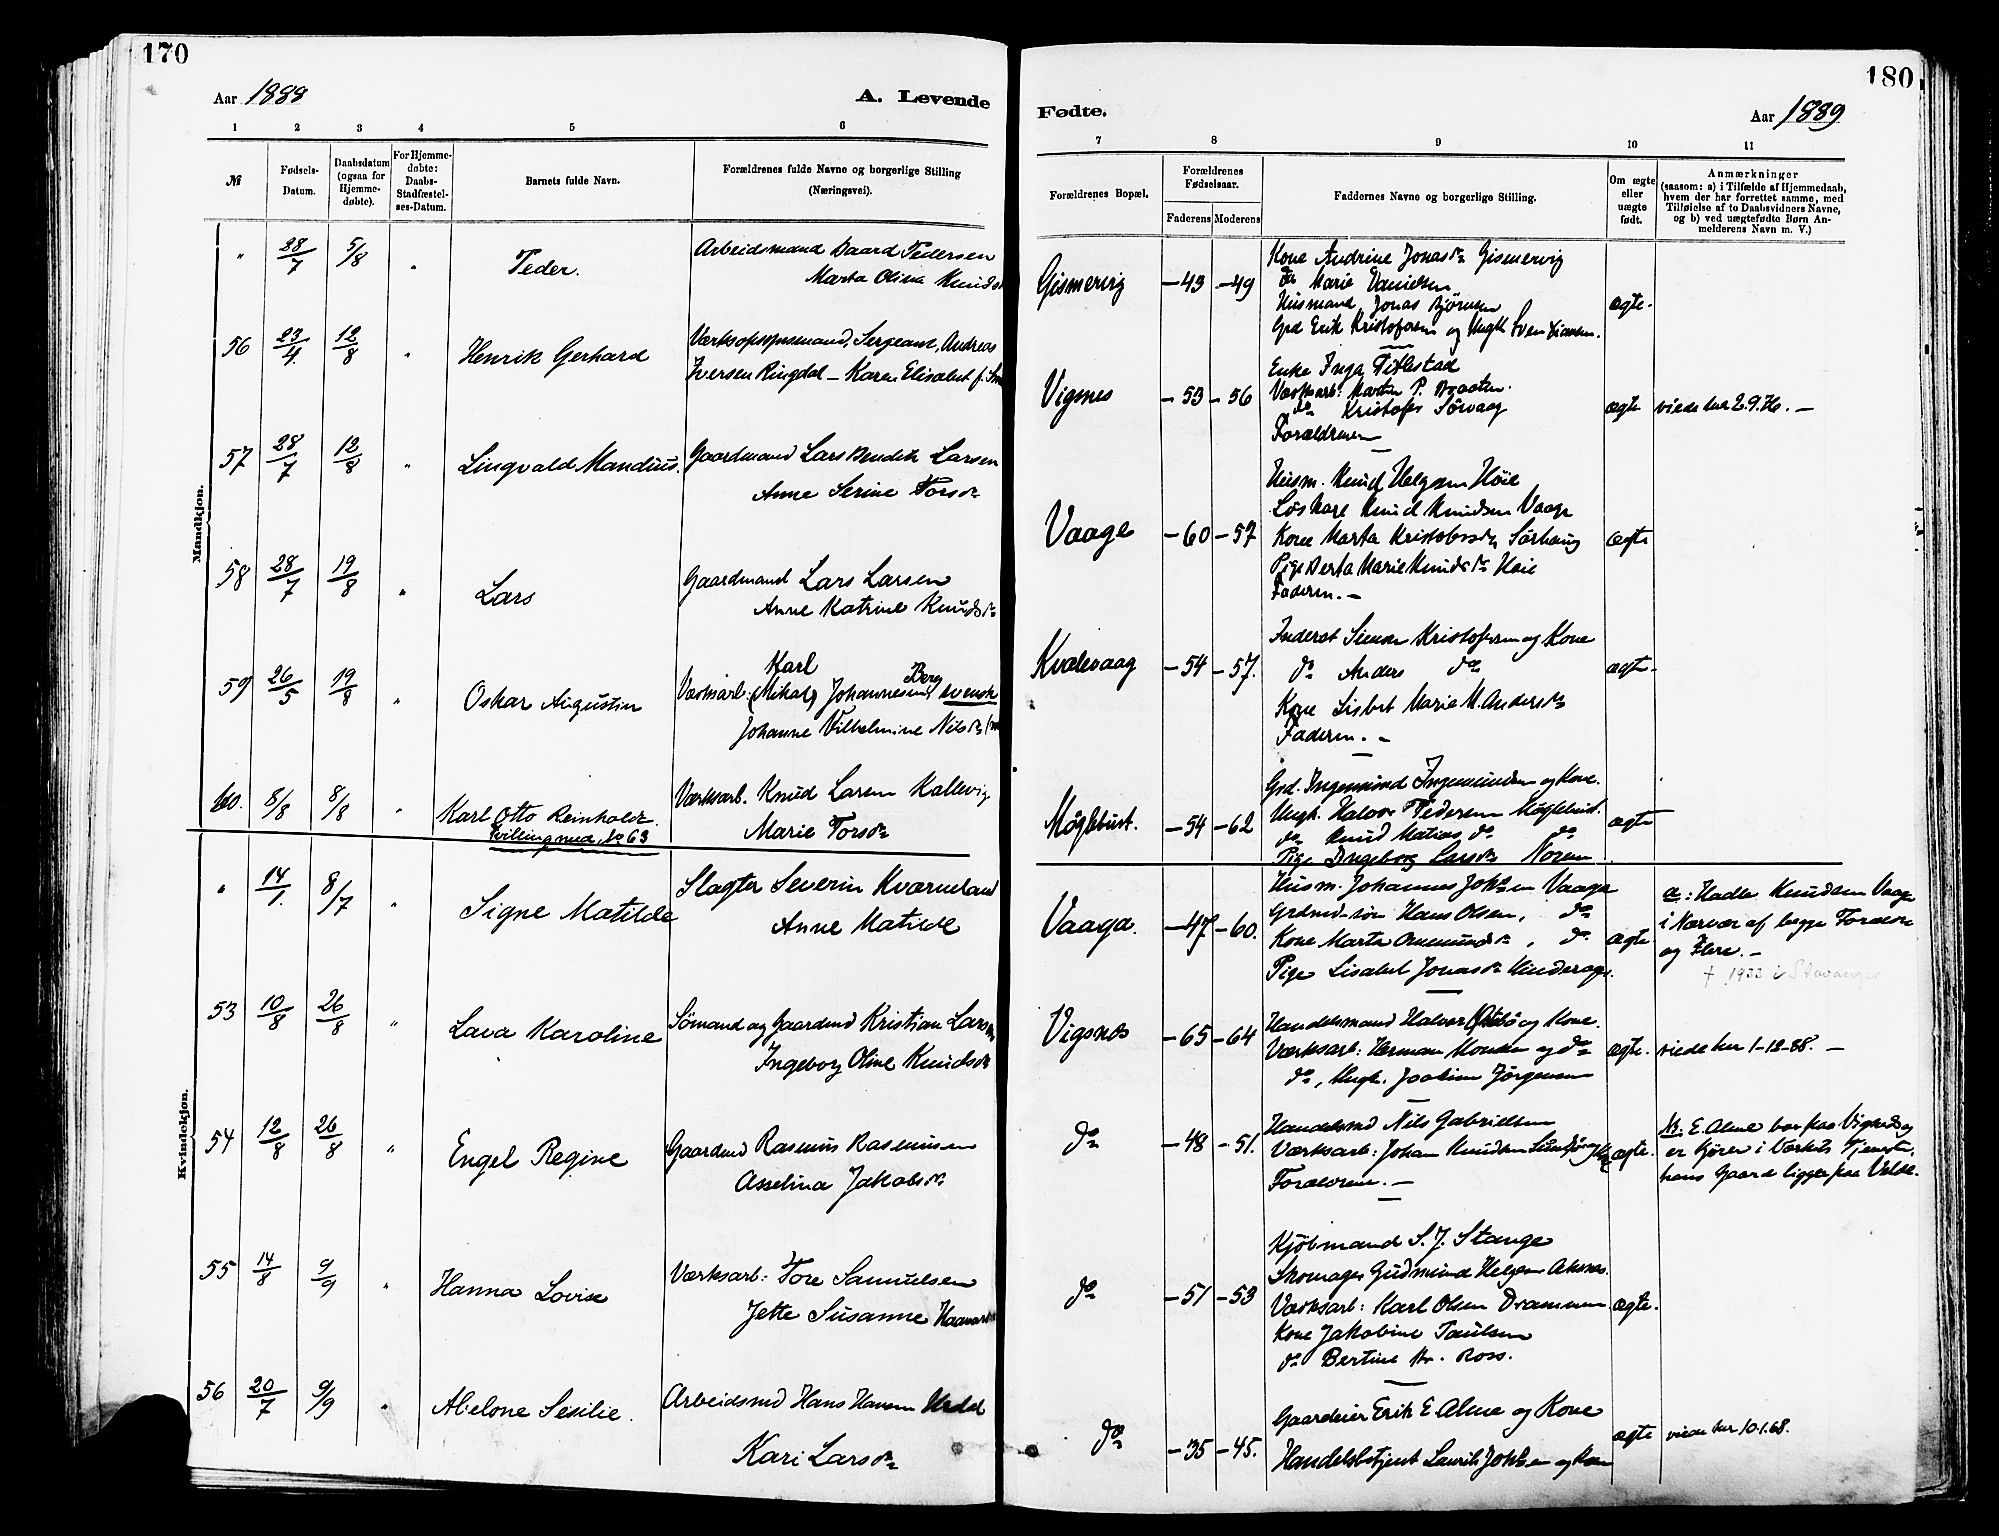 170
Aar 1888
A. Levende
1
2
3
4
5
6
№
Fødsels-
Datum.
Daabsdatum
(ogsaa for
Hjemme-
døbte).
For Hjemme-
døbte:
Daabs-
Stadfæstel-
ses-Datum.
Barnets fulde Navn.
Forældrenes fulde Navne og borgerlige Stilling
(Næringsvei).
Mandkjøn.
" 28/7 5/8 " Peder. Arbeidsmand Baard Pedersen
Marta Olina Knuds
56 23/4 12/8 " Henrik Gerhard Sergeant, Andreas
Iversen Ringdal – Karen Elisabet f.
57 28/7 12/8 " Lingvald Mandius. Gaardmand Lars Bendik Larsen
Anne Serine Torsdr
58 28/7 19/8 " Lars Gaardmand Lars Larsen
Anne Katrine Knudsdr
Karl Berg
59 26/5 19/8 " Oskar Augustin Værksarb: (Mikal) Johannesen, svensk
Johanne Vilhelmine Nilsdr
60. 8/8 8/8 " Karl Otto Reinholdt. Værksarb. Knud Larsen Kallevig
Tvilling med № 63 Marie Torsdr
Kvindekjøn.
" 14/1. 8/7 " Signe Matilde Slagter Severin Kværneland
Anne Matilde
53 10/8 26/8 " Lava Karoline Sømand og Gaardmd Kristian Larsen
Ingeborg Oline Knudsdr
54 12/8 26/8 " Engel Regine Gaardmd Rasmus Rasmussen
Asselina Jakobsdr
55 14/8 9/9 " Hanna Lovise Værksarb: Tore Samuelsen
Jette Susanne Haavar
56 20/7 9/9 " Abelone Sesilie. Arbeidsmd Hans Hansen
Kari Larsdr
180
Fødte.
Aar 1889
7
8
9
10
11
Forældrenes Bopæl.
Forældrenes
Fødselsaar.
Faderens Moderens
Faddernes Navne og borgerlige Stilling.
Om ægte
eller
uægte
født.
Anmærkninger
(saasom: a) i Tilfælde af Hjemmedaab,
hvem der har forrettet samme, med
Tilføielse af to Daabsvidners Navne,
og b) ved uægtefødte Børn An-
melderens Navn m. V.)
Kone Andrine Jonasdr Gismervig
do Marie Danielsen
Gismervig –43 –49 Husmand Jonas Bjørnsen ægte.
Grd Erik Kristofersen og Ungk Sven
Enke Inga Titlestad
Vigsnes –53 –56 Værksarb: Martin P. Braaten. ægte viede her 2.9.76. –
do Kristofer Sørvaag
Forældrene
Husm. Knud Helgesen Høie
Løskarl Knud Knudsen Vaage
Vaage –60 –57 Kone Marta Kristofersdr Sørhaug ægte
Pige Berta Marie Knudsdr Høie
Faderen. –
Inderst Simon Kristofersen og Kone
Kvalevaag –54 –57. do Anders do ægte.
Kone Lisbet Marie M. Andersdr
Faderen. –
Grd. Ingemund Ingemundsen og Kone.
Møglebust. –54 –62 Ungk. Halvor Pedersen Møglebust. ægte
do Knud Matias do do
Pige Ingeborg Larsdr Noren
Husm. Johannes Johsen Vaage a: Hadle Knudsen Vaage
Vaage. –47 –60. Grdmd-søn Hans Olsen, do i Nærvær af begge Forældre
Kone Marta Omundsdr, do ægte og Flere. –
Pige Lisabet Jonasdr Kinderages. † 1933 i Stavanger
Vigsnes –65 –64 Handelsmand Halvor Østebø og Kone.
Værksarb: Herman Monsen og do ægte. viede her 1-12-88. –
do, Ungk. Joakim Jørgensen
Handelsmd Nils Gabrielsen
do –48 –51. Værksarb: Johan Knudsen ægte.
Forældrene. –
NB: E. Alme bor paa Vigsnes og
er Kjører i Værkets Tjeneste,
hans Gaard ligger paa
Kjøbmand S. J. Stange
Skomager Gudmund Helgesen Aksnes.
do –51 –53 Værksarb: Karl Olsen Drammen ægte.
Kone Jakobine Paulsen
do Bertine Ross.
do –35 –45. Gaardeier Erik E Alme og Kone ægte viede her 10.1.68.
Handelsbetjent Laurits Johsen og Kone